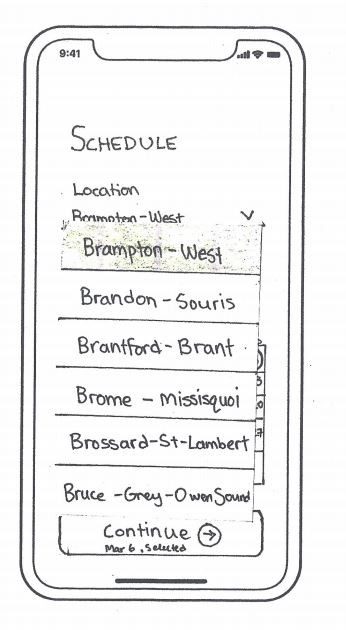 9:41
SCHEDULE
Location
Brampton-West
Brampton-West
Brandon-Souris
Brantford-Brant
Brome - Missisquoi
Brossard-St-Lambert
Bruce -Grey-Owen Sound
Continue
Mar 6, Selected